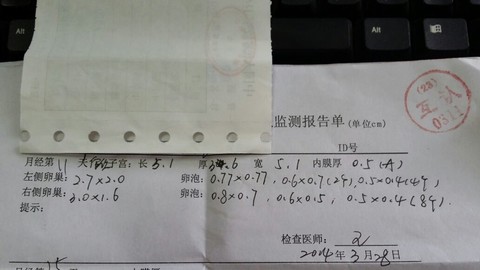 Alt
Alt
监测报告单(单位cm)
(23)
互认
ID号
月经第11天 子宫:长5.1 厚3.6 宽5.1 内膜厚0.5(A)
左侧卵巢:2.7×2.0 卵泡:0.77×0.77, 0.6×0.7(2个), 0.5×0.4(4个)
右侧卵巢:3.0×1.6 卵泡:0.8×0.7, 0.6×0.5, 0.5×0.4(8个)
提示:
检查医师:
2014年3月28日
月经第15天